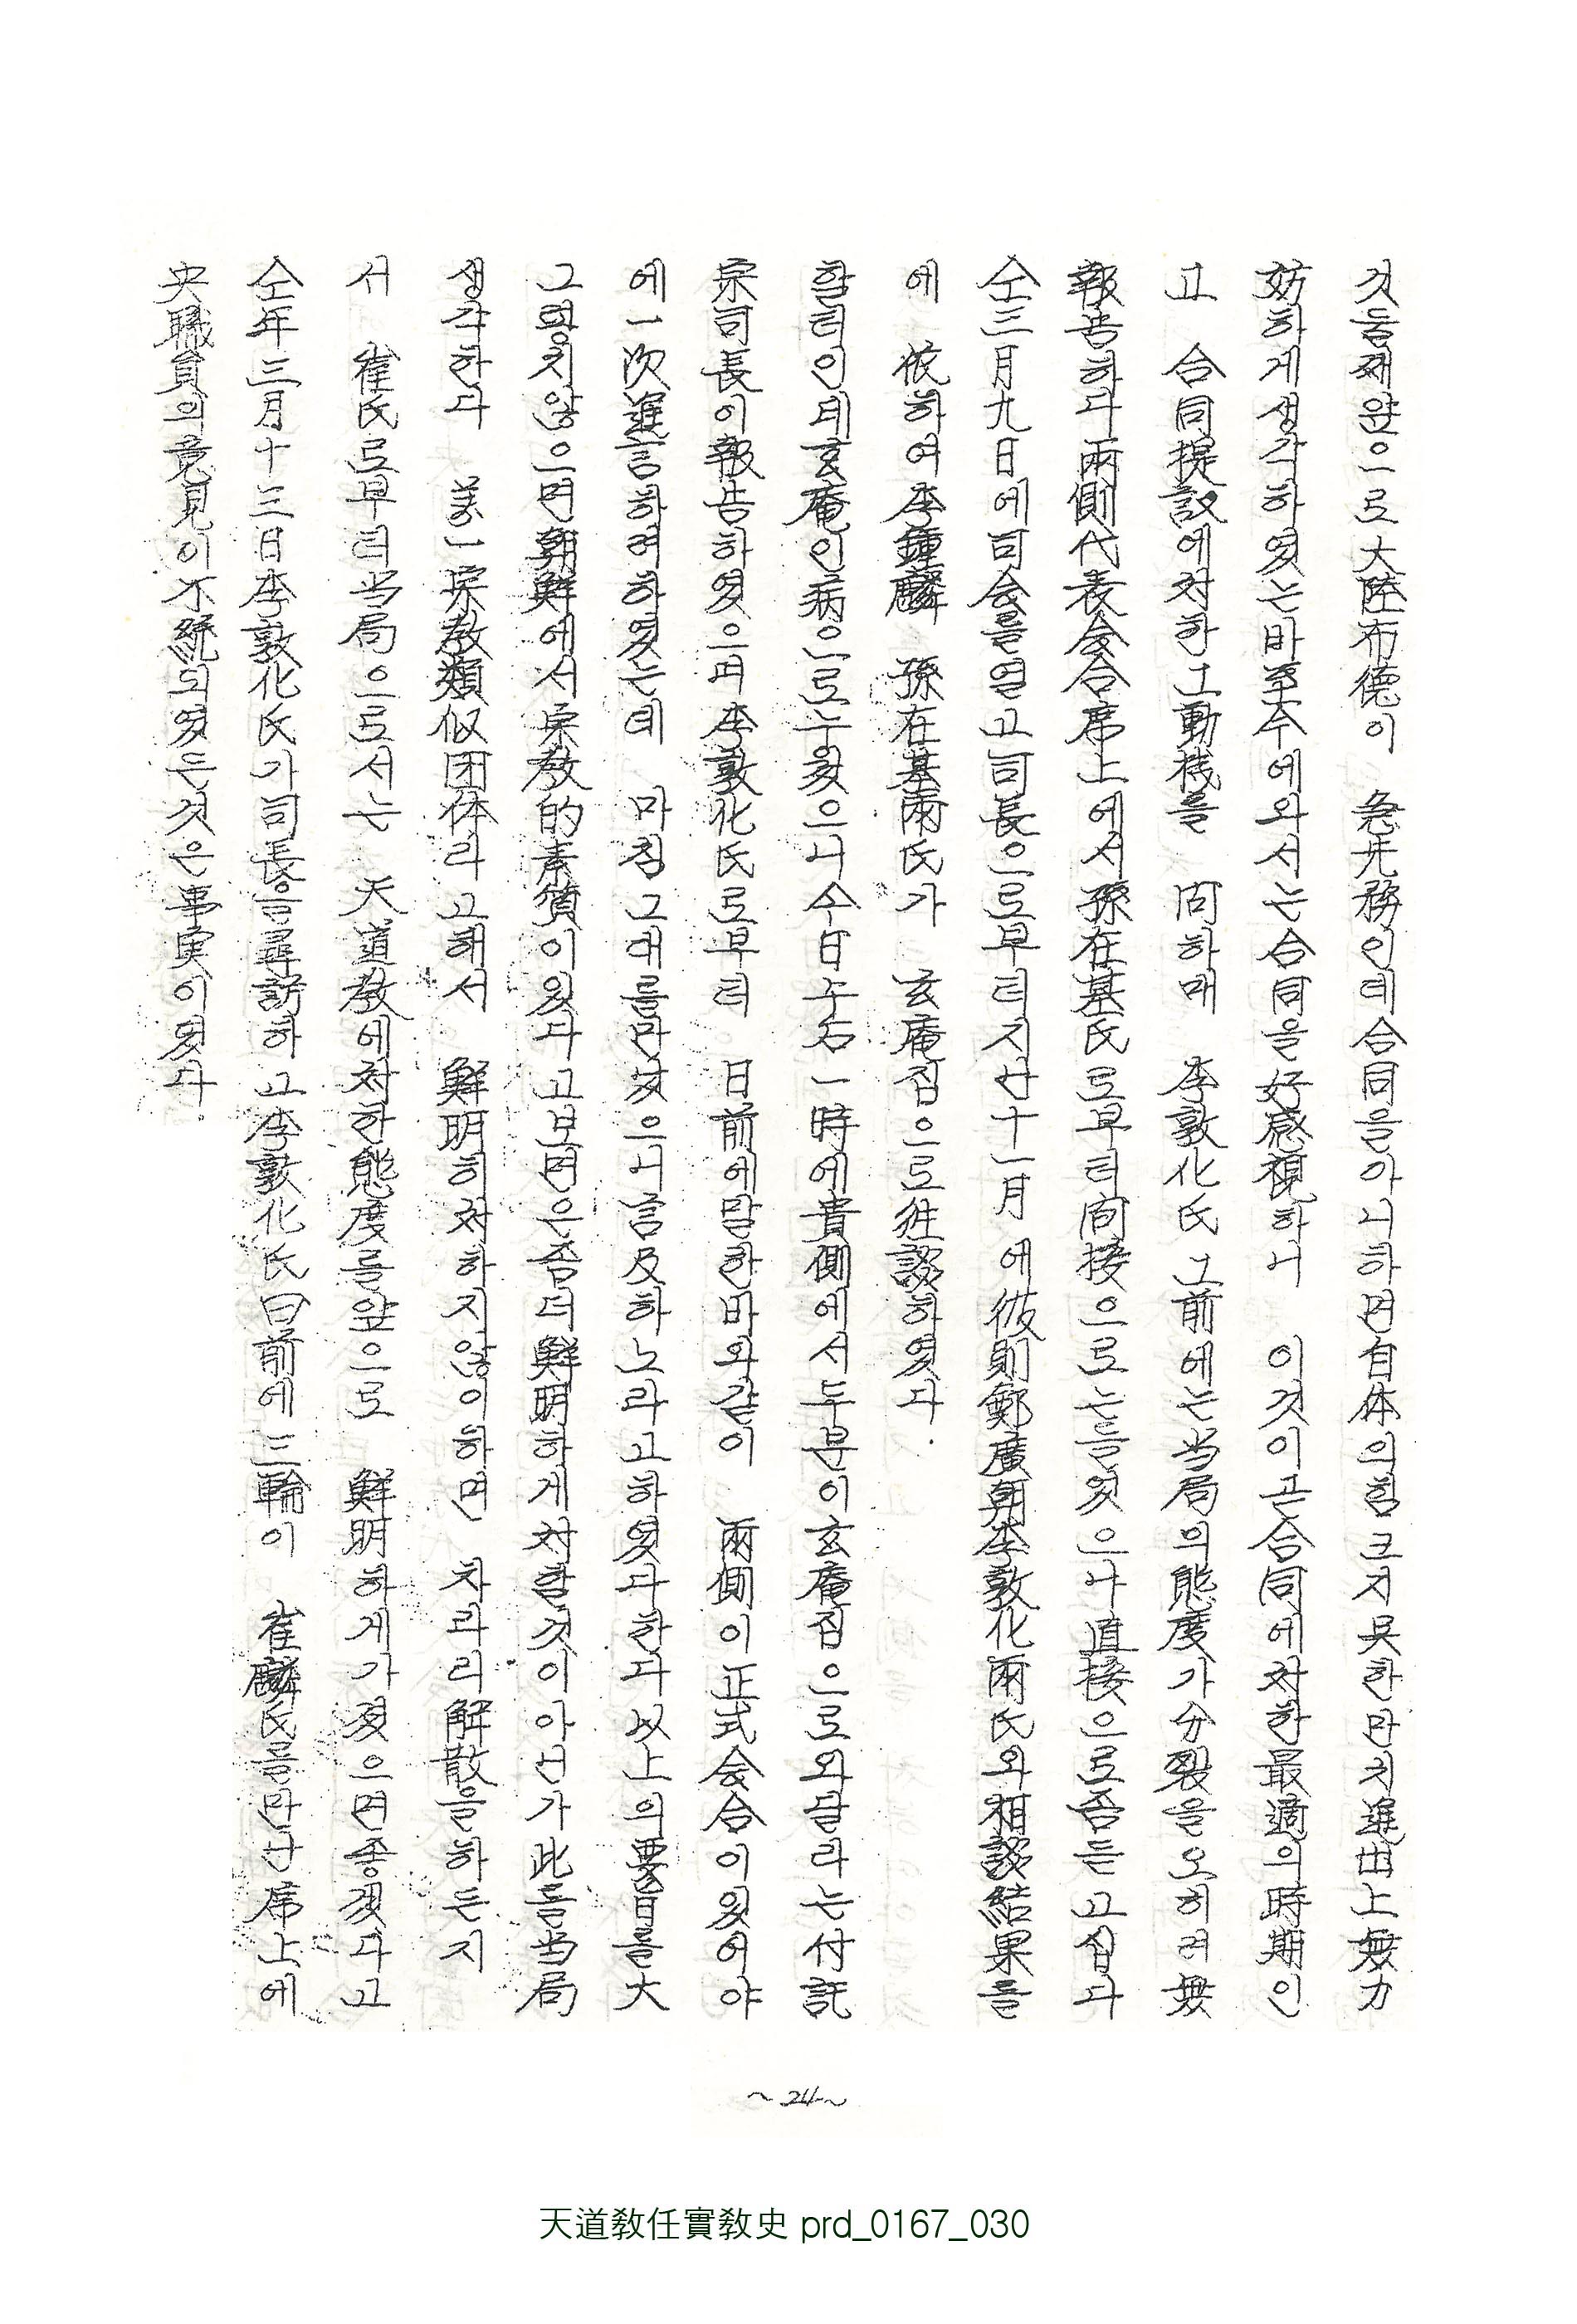 것둘째앞으로大陸布德이 急先務인데合同을아니하면自体의힘크지못한만치進出上無力
妨하게생각하였는바至今에와서는合同을好感視하니 이것이곧合同에처한最適의時期인
고 合同提議에처한그動機를 问하매 李敦化氏 그前에는当局의態度가分裂을오히려無
報告하다兩側代表会合席上에서孫在基氏로부터间接으로는들었으나直接으로좀듣고십다
仝三月九日에司会를열고司長으로부터지난十一月 에彼則鄭廣朝李敦化兩氏와相談結果를
에 依하여李鍾麟 孫在基兩氏가 玄庵집으로往談하였다.
함터인데玄庵인病으로누웠으니今日午后一時에貴側에서두분이玄庵집으로와달라는付託
宗司長이報告하였으며李敦化氏로부터 日前에말한바와같이 兩側이正式会合이있어야
에一次進言하려하였는데 마침그대를만났으니言及하노라고하였다한다以上의要旨를大
그렇치않으면朝鮮에서宗敎的素質이있다고보면은좀더鮮明하게처할것이아닌가此를当局
생각한다 万一宗敎類似団体라고해서 鮮明히처하지않이하면 차라리解散을하든지
서 崔氏로부터当局으로서는 天道敎에처한態度를앞으로 鮮明하게가젔으면좋겠다고
仝年三月十三日李敦化氏가司長을尋訪하고李敦化氏曰前에三輪이 崔麟氏를만난席上에
央職員의意見이不統되였든것은事実이였다.
~24~
天道敎任實敎史 prd_0167_030